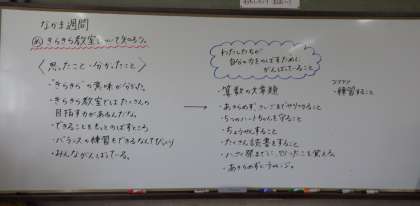 なかま週間
め きらきら教室について知ろう。
<思ったこと・分かったこと>
・"きらきら"の意味が分かった。
・きらきら教室ではたくさんの
目指す力があるんだな。
・できることをもっとのばすところ。
・バランスの練習もできるなんてびっくり
・みんながんばっている。
→
わたしたちが
自分の力をのばすために
がんばっていること
・算数の文章題
・あきらめず、さいごまでやりきること
・5つのハートちゃんを守ること
・ちょうせんすること
・たくさん読書をすること
・あきらめずにチャレンジ。
・練習すること